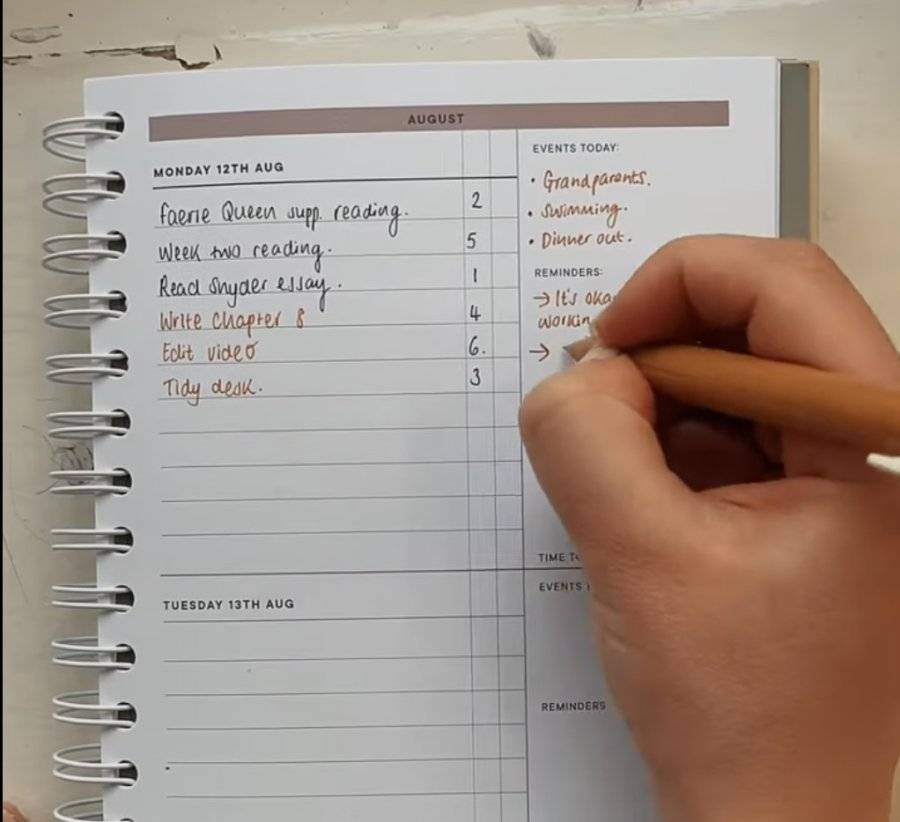 AUGUST
MONDAY 12TH AUG
faerie Queen supp. reading. 2
Week two reading. 5
Read Snyder essay. 1
Write Chapter 8 4
Edit video 6.
Tidy desk. 3
EVENTS TODAY:
• Grandparents.
• Swimming.
• Dinner out.
REMINDERS:
→ It's
→
TIME
TUESDAY 13TH AUG
EVENTS
REMINDERS